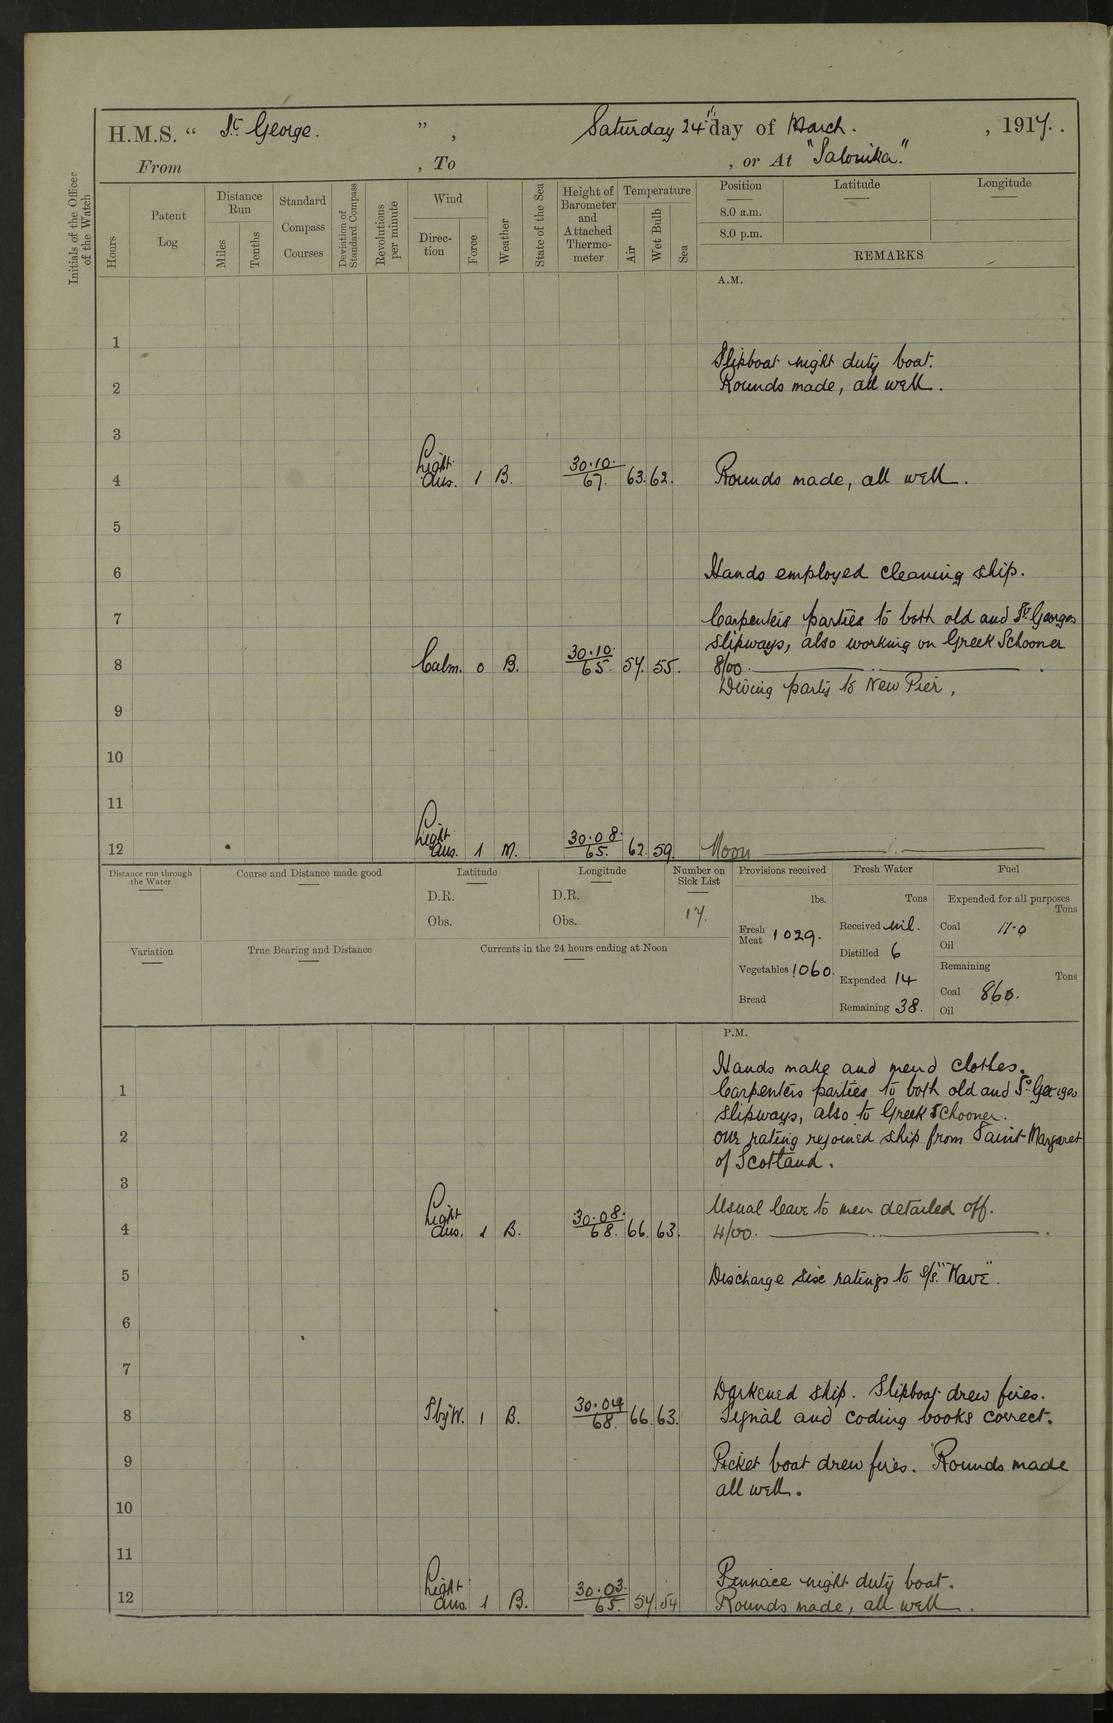 H.M.S. “ St George. ” , Saturday 24th day of March. , 1917.
From , To , or At "Salonika."
Initials of the Officer of the Watch
Hours
Patent Log
Distance Run
Miles
Tenths
Standard Compass Courses
Deviation of Standard Compass
Revolutions per minute
Wind
Direc-tion
Force
Weather
State of the Sea
Height of Barometer and Attached Thermo-meter
Temperature
Air
Wet Bulb
Sea
Position Latitude Longitude
8.0 a.m.
8.0 p.m.
REMARKS
A.M.
1
Slipboat night duty boat.
2 Rounds made, all well.
3
4 Light airs. 1 B. 30.10. 67. 63. 62. Rounds made, all well.
5
6 Hands employed cleaning ship.
7 Carpenters parties to both old and St Georges
slipways, also working on Greek Schooner
8 Calm. 0 B. 30.10 65. 57. 55. 8/00
Diving party to New Pier,
9
10
11
12 Light airs. 1 M. 30.08. 65. 62. 59. Noon
Distance run through the Water
Course and Distance made good
Latitude
D.R.
Obs.
Longitude
D.R.
Obs.
Number on Sick List
17.
Provisions received
lbs.
Fresh Meat 1029.
Vegetables 1060.
Bread
Fresh Water
Tons
Received Nil.
Distilled 6
Expended 14
Remaining 38.
Fuel
Expended for all purposes
Tons
Coal 17.0
Oil
Remaining
Tons
Coal 860.
Oil
Variation
True Bearing and Distance
Currents in the 24 hours ending at Noon
P.M.
Hands make and mend clothes.
1 Carpenters parties to both old and St Georges
slipways, also to Greek Schooner.
2 One rating rejoined ship from Saint Margaret
of Scotland.
3
Usual leave to men detailed off.
4 Light airs. 1 B. 30.08. 68. 66. 63. 4/00.
5 Discharge disc ratings to S/S.
6
7
Darkened ship. Slipboat drew fires.
8 SbyW. 1 B. 30.04 68. 66. 63. Signal and coding books correct.
9 Picket boat drew fires. Rounds made
all well.
10
11
Pinnace night duty boat.
12 Light airs. 1 B. 30.03. 65. 57. 54 Rounds made, all well.